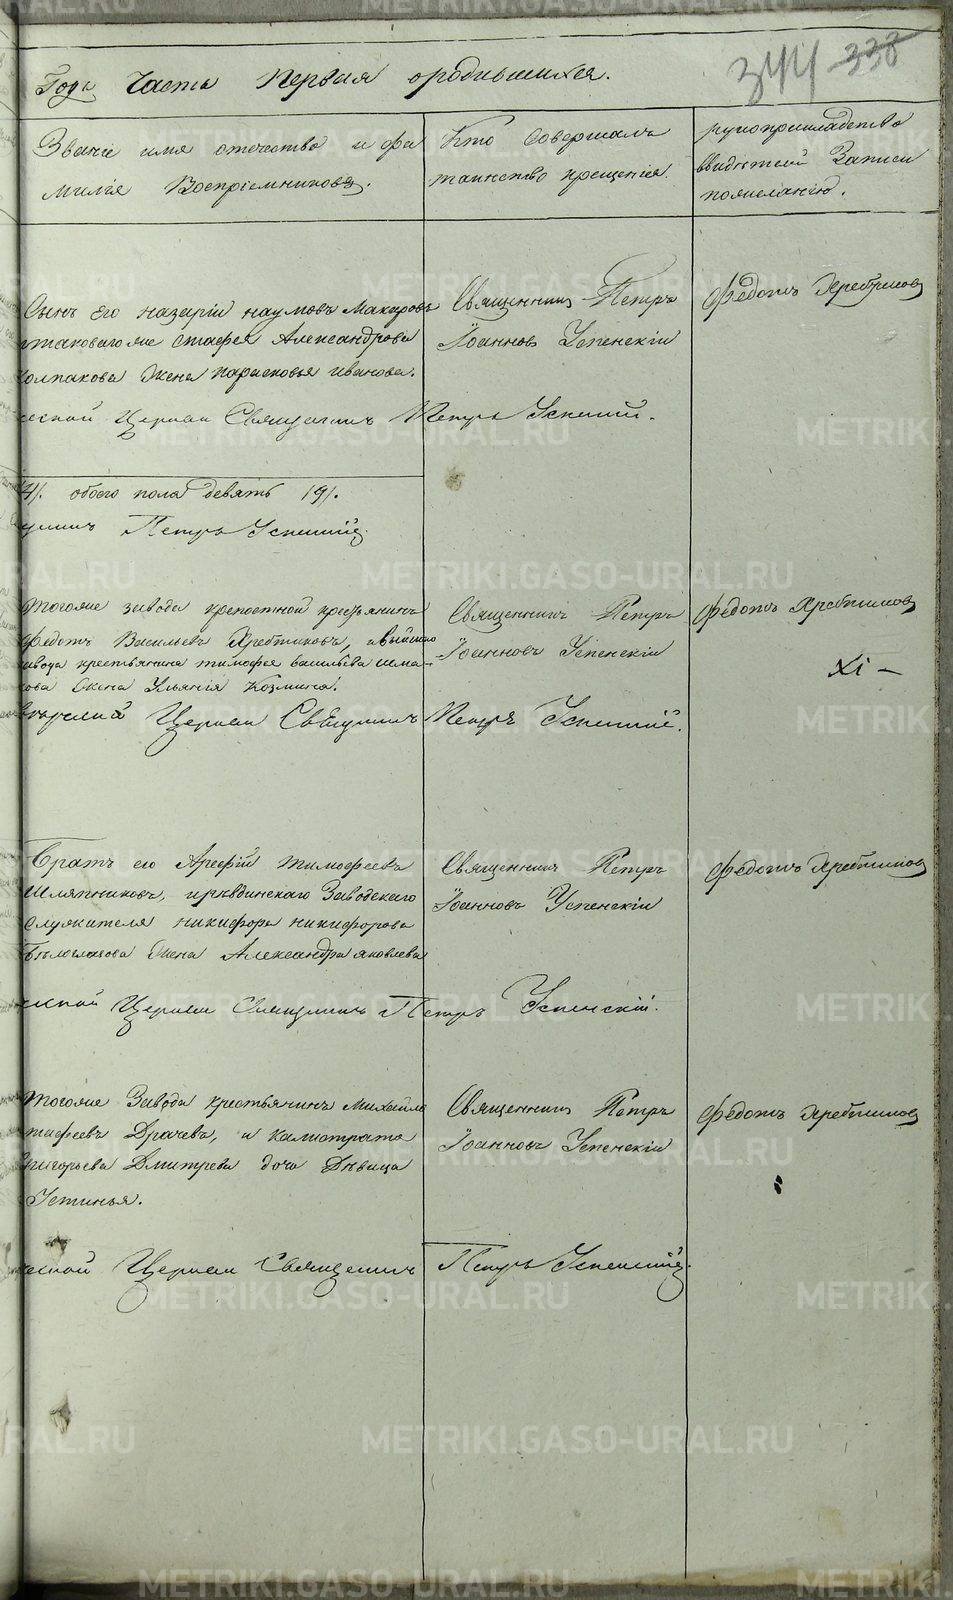 344 338
Года Часть Первая о родившихся.
Званіе имя отечество и фа
милія Воспріемниковъ.
Кто совершалъ
таинство крещенія.
рукоприкладство
свидѣтелей Записи
по желанію.
Сынъ его назарій наумовъ Макаровъ
таковагоже Александрова
колпакова жена парасковья иванова.
Священникъ Петръ
Іоанновъ Успенскій
Федотъ Хребтиковъ
ской Церкви Священникъ Петръ Успенскій.
/4/. обоего пола девять /9/.
Петръ Успенскій
тогоже завода крепостной крестьянинъ
Федотъ Васильевъ Хребтиковъ,
завода крестьянина тимофея васильева
жена Ульянія Козмина.
Священникъ Петръ
Іоанновъ Успенскій
Федотъ Хребтиковъ
XI –
Церкви Священникъ Петръ Успенскій.
Братъ его Арефій тимофеевъ
Шляпниковъ, Заводскаго
Служителя никифора никифорова
Бѣлоглазова жена Александра яковлева
Священникъ Петръ
Іоанновъ Успенскій
Федотъ Хребтиковъ
ской Церкви Священникъ Петръ Успенскій.
тогоже Завода крестьянинъ Михайло
Драчевъ, и калистрата
григорьева Дмитрева дочь Дѣвица
Устинья.
Священникъ Петръ
Іоанновъ Успенскій
Федотъ Хребтиковъ
ской Церкви Священникъ Петръ Успенскій.
METRIKI.GASO-URAL.RU